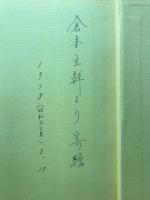 倉本主幹より寄贈
1978(昭和五三年)3.10.